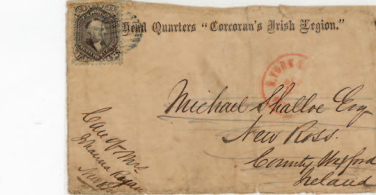 Head Quarters "Corcoran's Irish Legion."
N. YORK
Michael Shalloe Esq
New Ross.
County Wexford
Ireland
Care of Mr